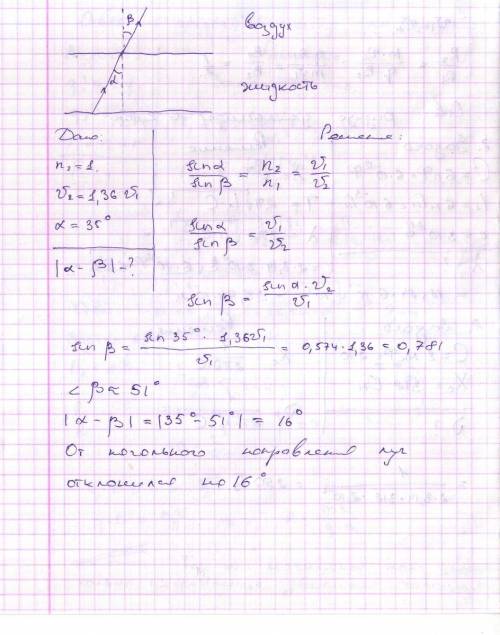 β
воздух
α
жидкость
Дано: Решение:
n₁ = 1.
v₂ = 1,36 v₁
α = 35°
|α - β| - ?
sin α / sin β = n₂ / n₁ = v₁ / v₂
sin α / sin β = v₁ / v₂
sin β = sin α · v₂ / v₁
sin β = sin 35° · 1,36 v₁ / v₁ = 0,574 · 1,36 = 0,781
< β ≈ 51°
|α - β| = |35° - 51°| = 16°
От начального направления луч
отклонился на 16°